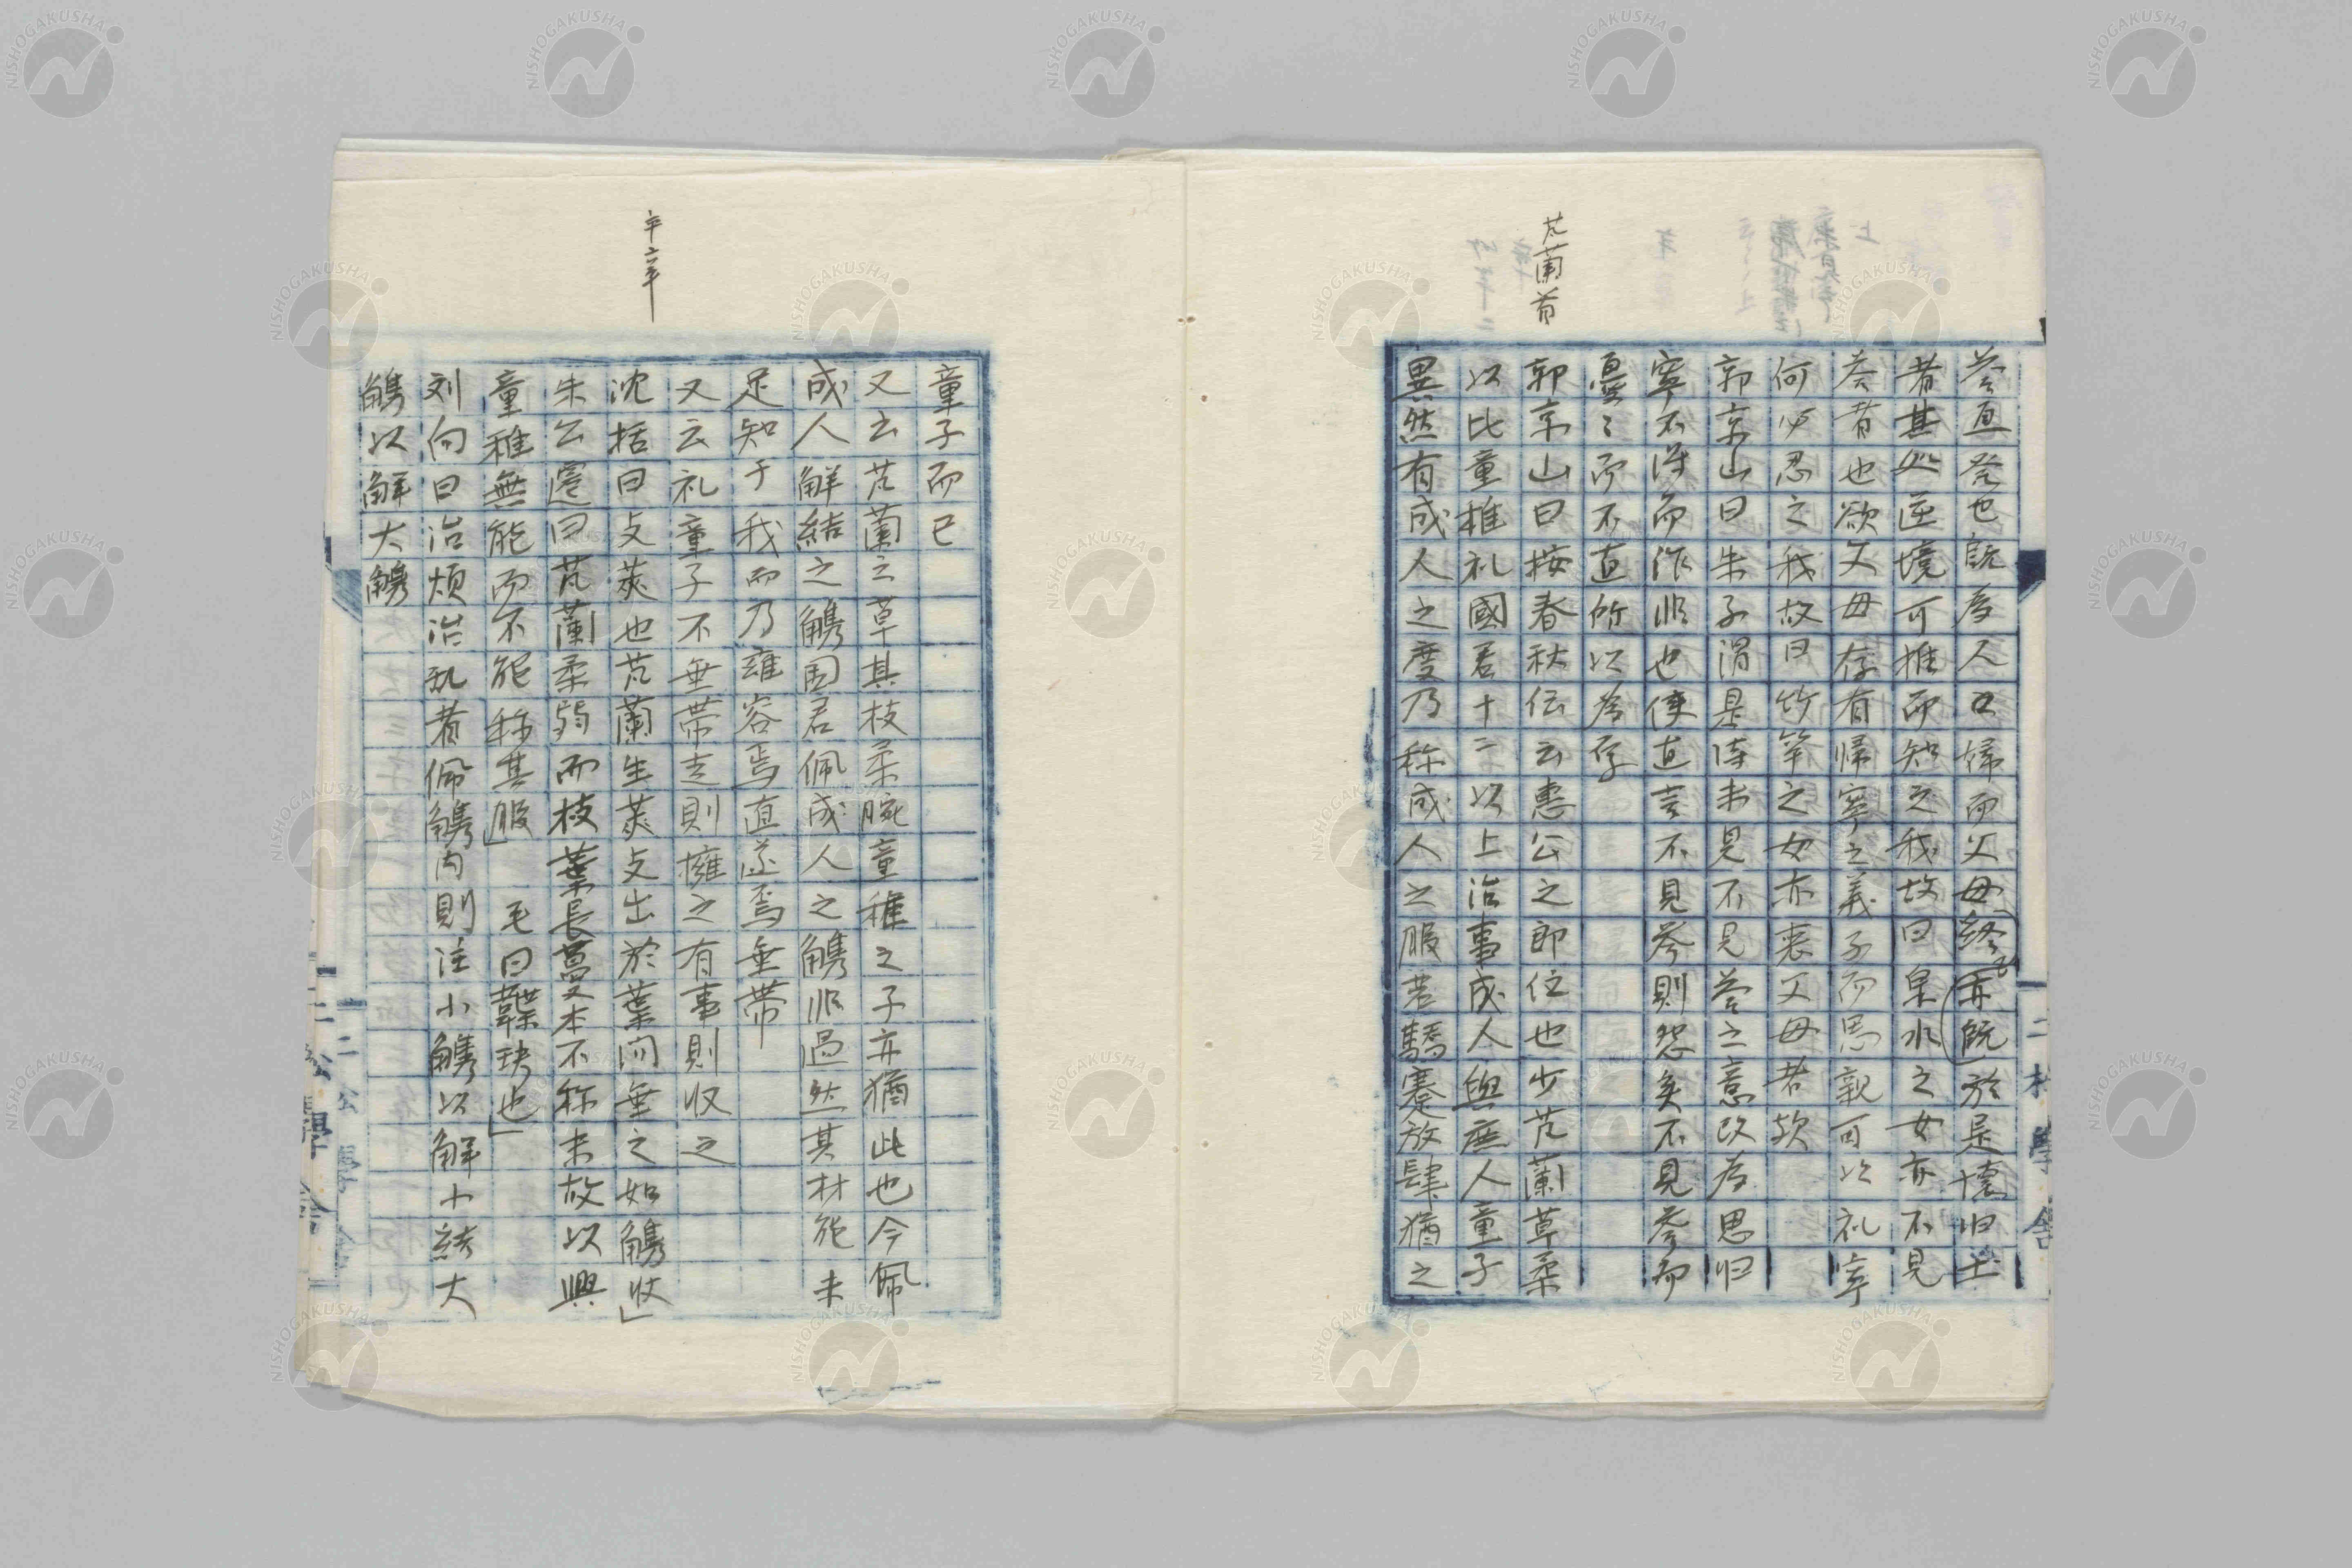 芄蘭首
荅直荅也既為人之婦而父母終亦既於是懷归土
者甚此逆境可推而知之我故曰泉水之女亦不見
荅者也欲父母存有帰寧之義子而思親可以礼寧
何必忍之我故曰竹竿之女亦喪父母者欤
郭京山曰朱子謂是詩未見不見荅之意改為思归
寧不淂而作非也使直言不見荅則怨矣不見荅而
不直所以為厚
郭京山曰按春秋伝云惠公之即位也少芄蘭草柔
以比童稚礼國君十二以上治事成人與庶人童子
異然有成人之度乃称成人之服若驕蹇放肆猶之
二松學舎
童子而已
又云芄蘭之草其枝柔腕童稚之子亦猶此也今佩
成人觧結之觿國君佩成人之觿非過然其材能未
足知于我而乃雍容焉直遂焉垂帯
又云礼童子不垂帯走則擁之有事則収之
沈括曰支莢也芄蘭生莢支出於葉间垂之如觿收」
朱公遷曰芄蘭柔弱而枝葉長蔓本不称末故以興
童稚無能而不能称其服」 毛曰韘玦也」
刘向曰治煩治乱者佩觿内則注小觿以解小結大
觿以解大觿
二松學舎